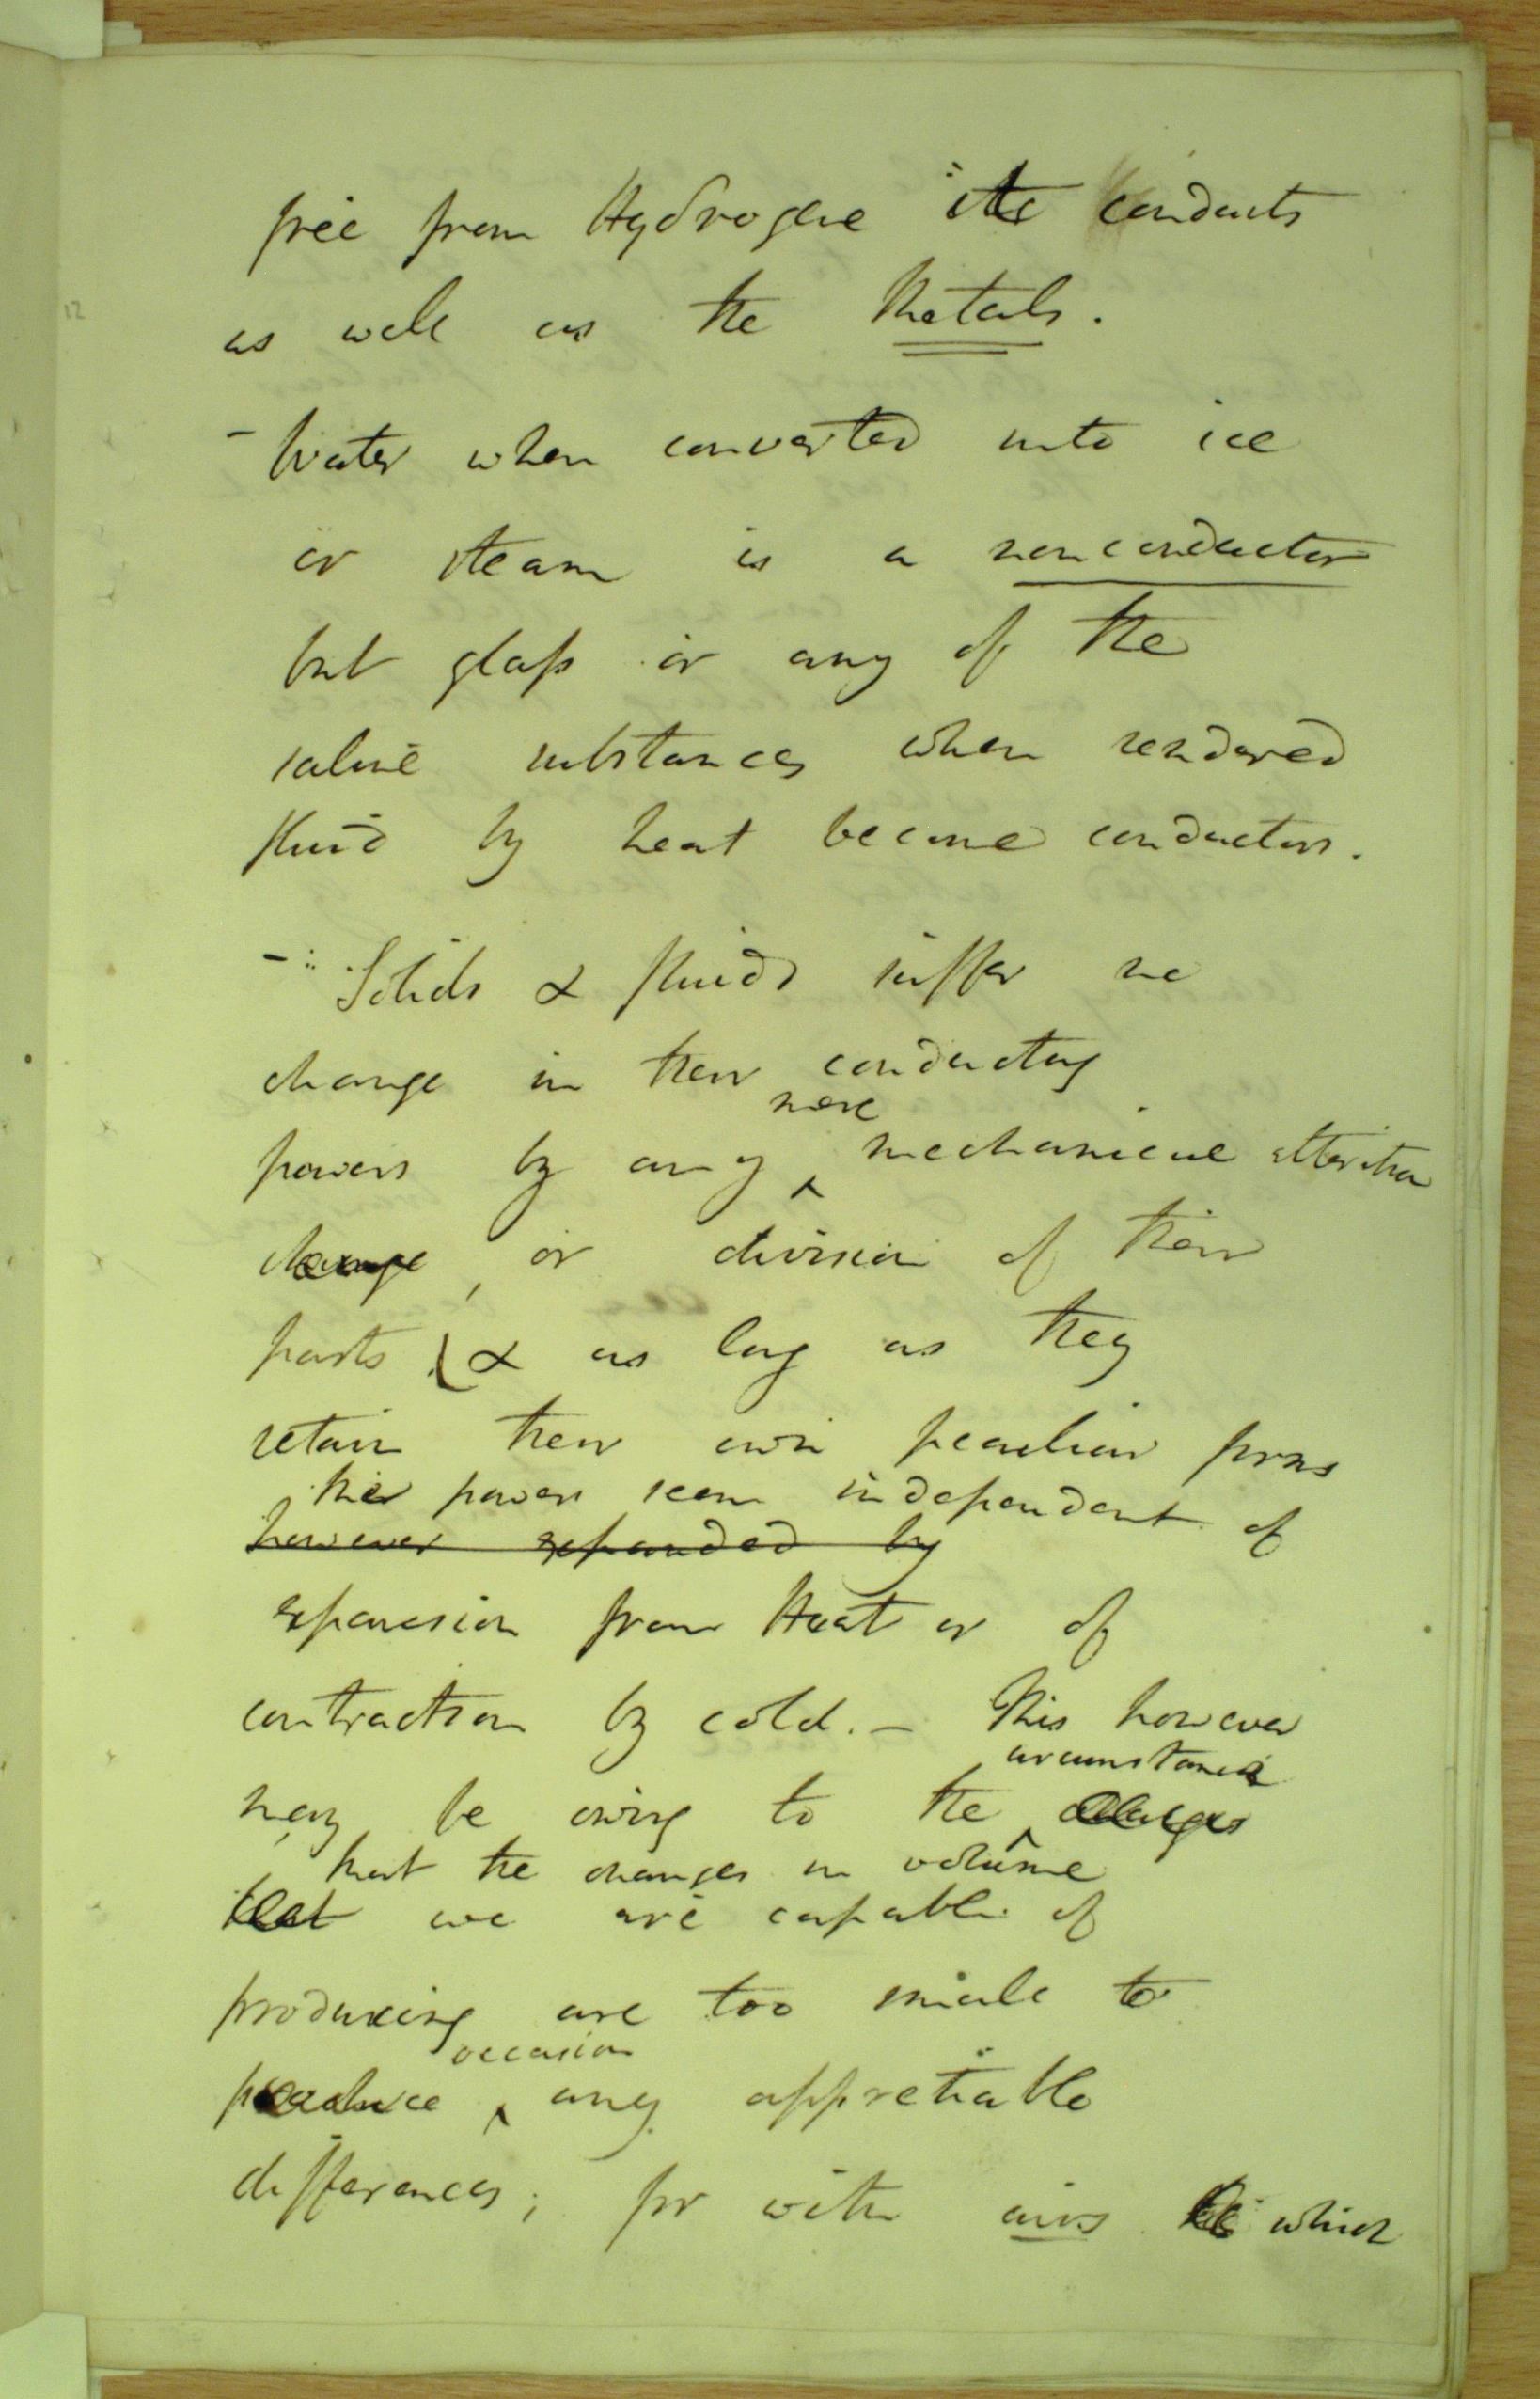 free from Hydrogene it conducts
as well as the Metals.
- Water when converted into ice
or steam is a nonconductor
but glass or any of the
saline substances when rendered
fluid by heat become conductors.
- Solids & fluids suffer no
change in their conducting
mere
powers by any ^ mechanical attrition
change, or division of their
parts. & as long as they
retain their own peculiar forms
their powers seem independent of
however expanded by
expansion from Heat or of
contraction by cold. - This however
circumstance
may be owing to the ^ changes
that the changes in volume
that we are capable of
producing are too small to
occasion
produce ^ any appretiable
differences; for with airs which